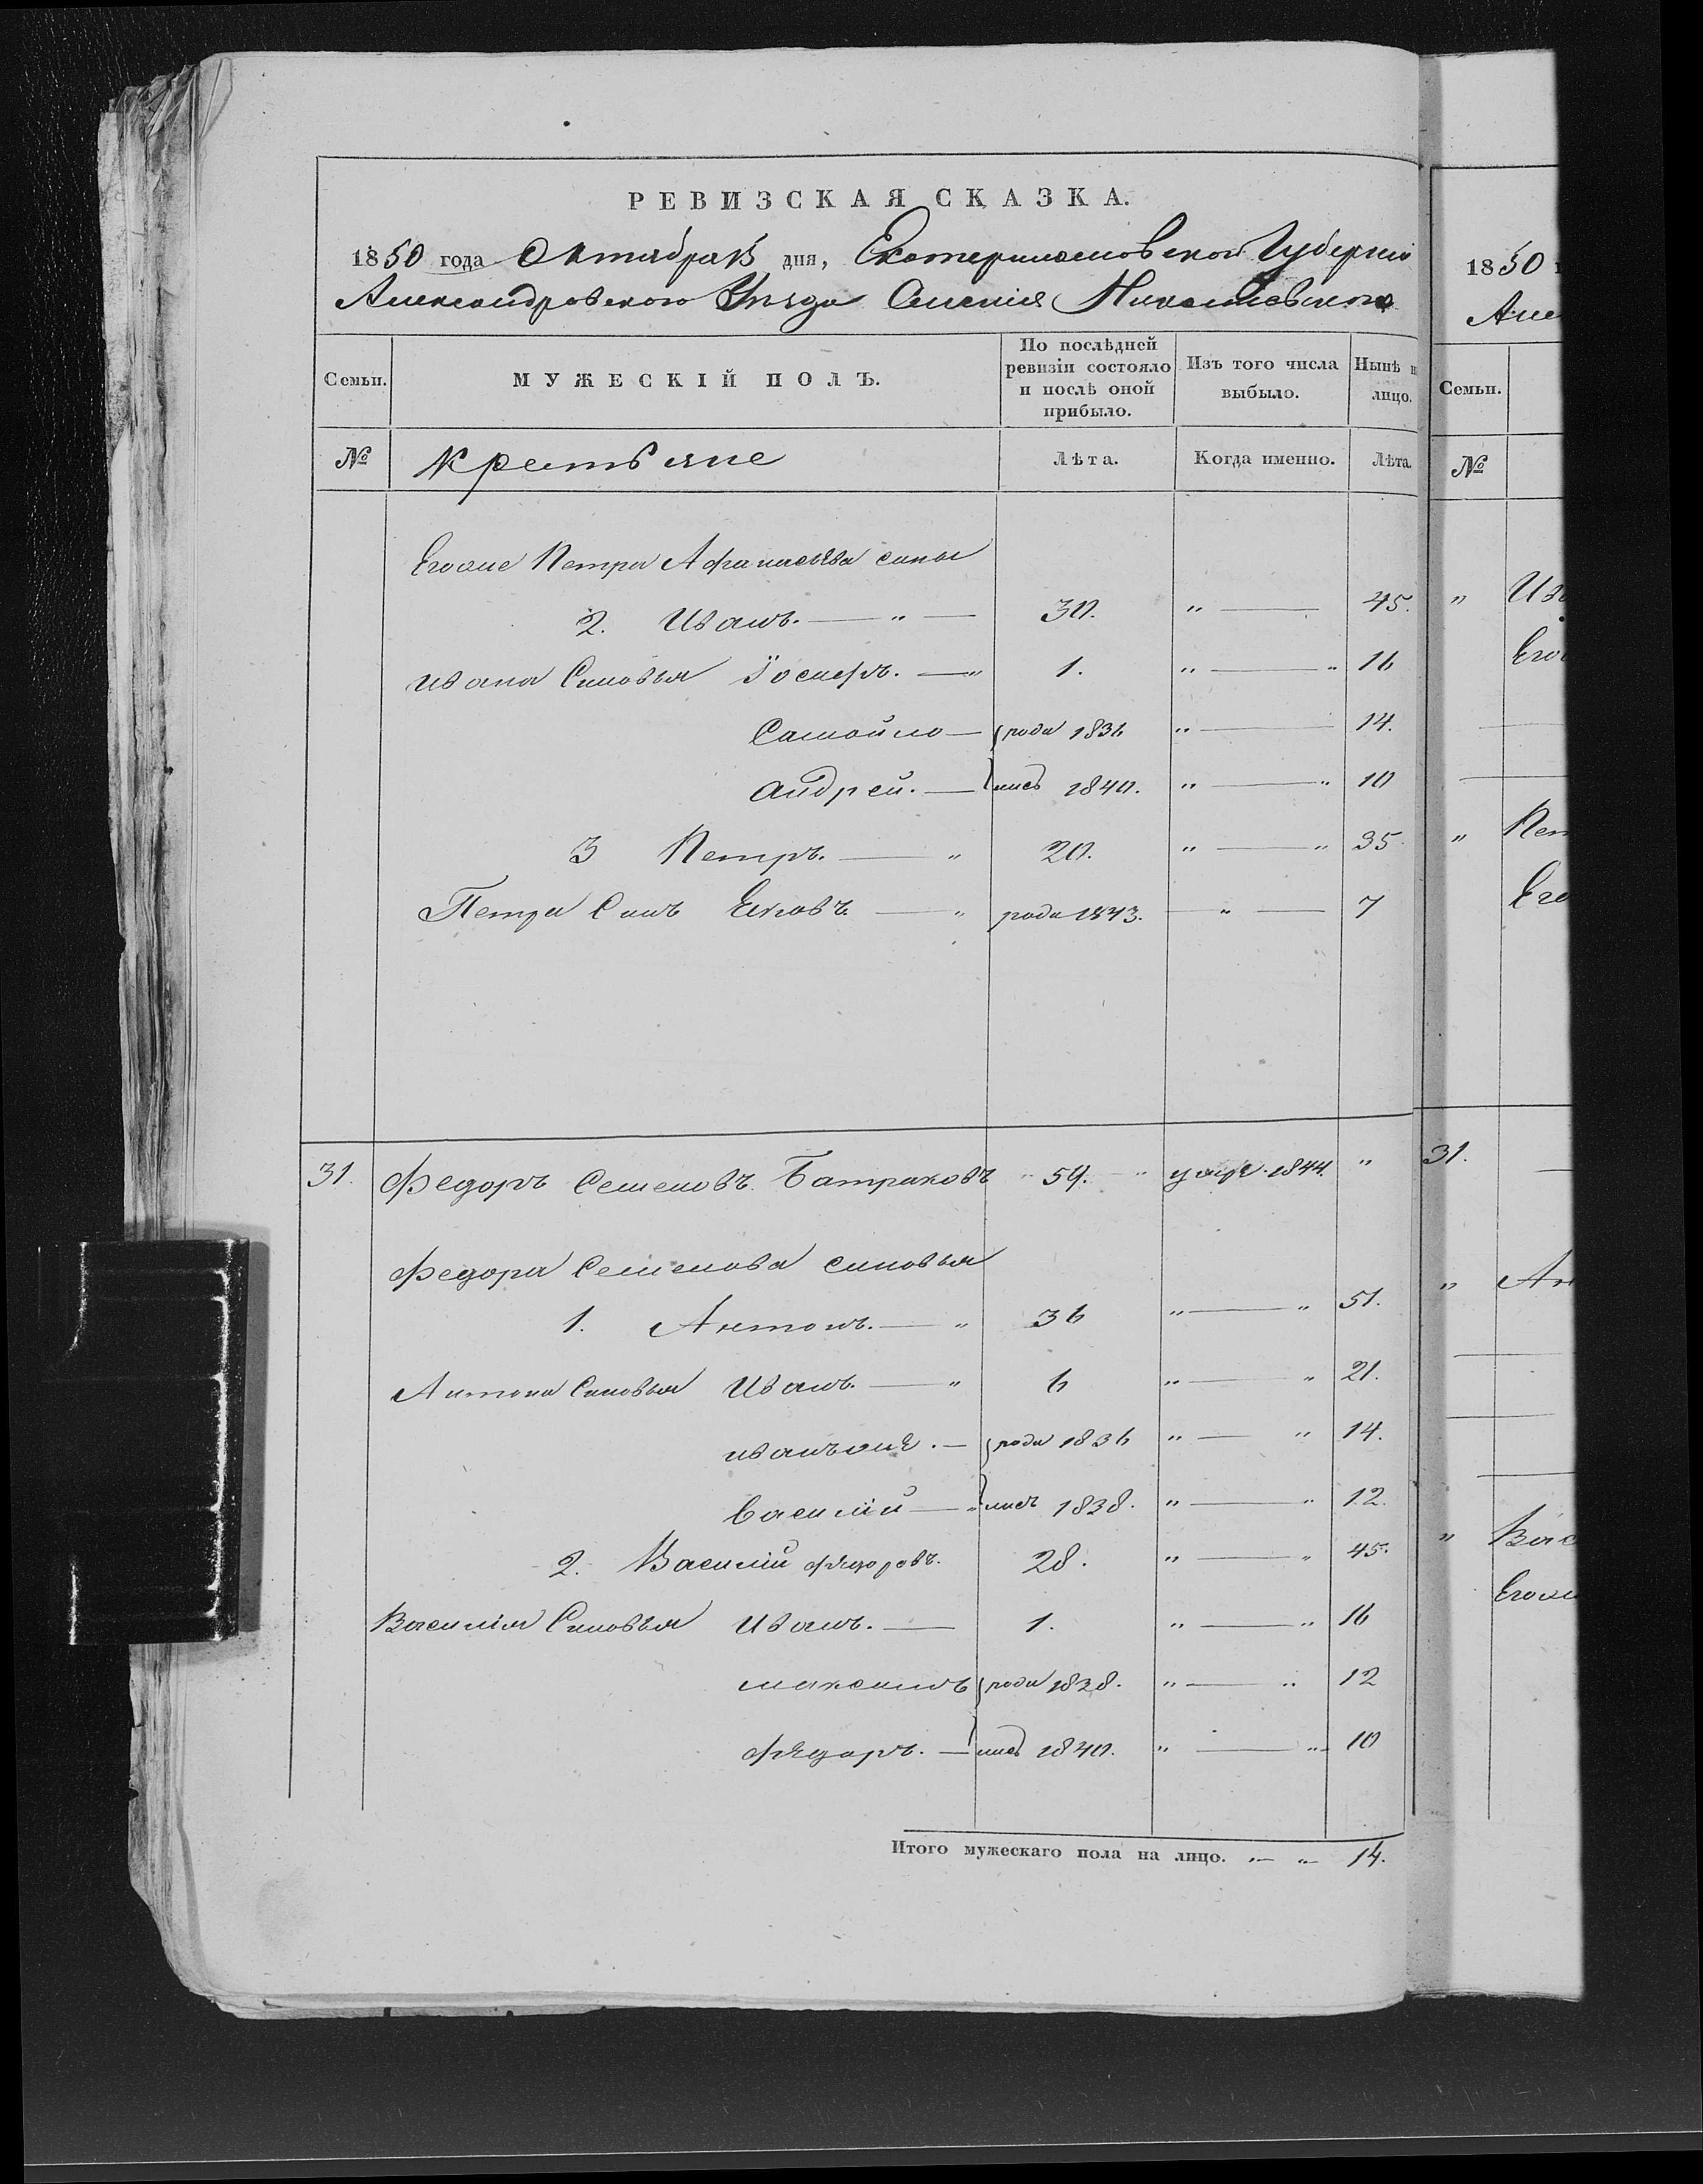 РЕВИЗСКАЯ СКАЗКА.
1850 года Октября 15 дня, Екатеринославской Губерніи
Александровского Уезда Селенія Николаевского
Семьи.
МУЖЕСКІЙ ПОЛЪ.
По послѣдней ревизіи состояло и послѣ оной прибыло.
Изъ того числа выбыло.
Нынѣ н лицо.
№ Крестьяне Лѣта. Когда именно. Лѣта.
Егоже Петра Афанасьева сины
2. Иванъ. — " — 30. " — 45.
ивана Синовья Іосифъ. — " 1. " — " 16
Самойло — роди 1836 " — 14.
андрей. — лись 1840. " — " 10
3 Петръ. — " 20. " — " 35
Петра Синъ Яковъ — " роди 1843. — " — 7
31. Федоръ Семеновъ Батраковъ " 59. " уме. 1844. "
Федора Семенова синовья
1. Антонъ. — " 36 " — " 51.
Антона Синовья Иванъ. — " 6 " — " 21.
иванъ оне. — роди 1836 " — " 14.
василій — " лись 1838. " — " 12.
2. Василій федоровъ. 28. " — " 45.
Василія Синовья Иванъ. — 1. " — " 16
максимъ роди 1838. " — " 12
федоръ. — лись 1840. " — " 10
Итого мужескаго пола на лицо. " — " — 14.
1850
Але
Семьи.
№
" Ив
Его
" Пет
Его
31.
" Ан
" Вас
Егож